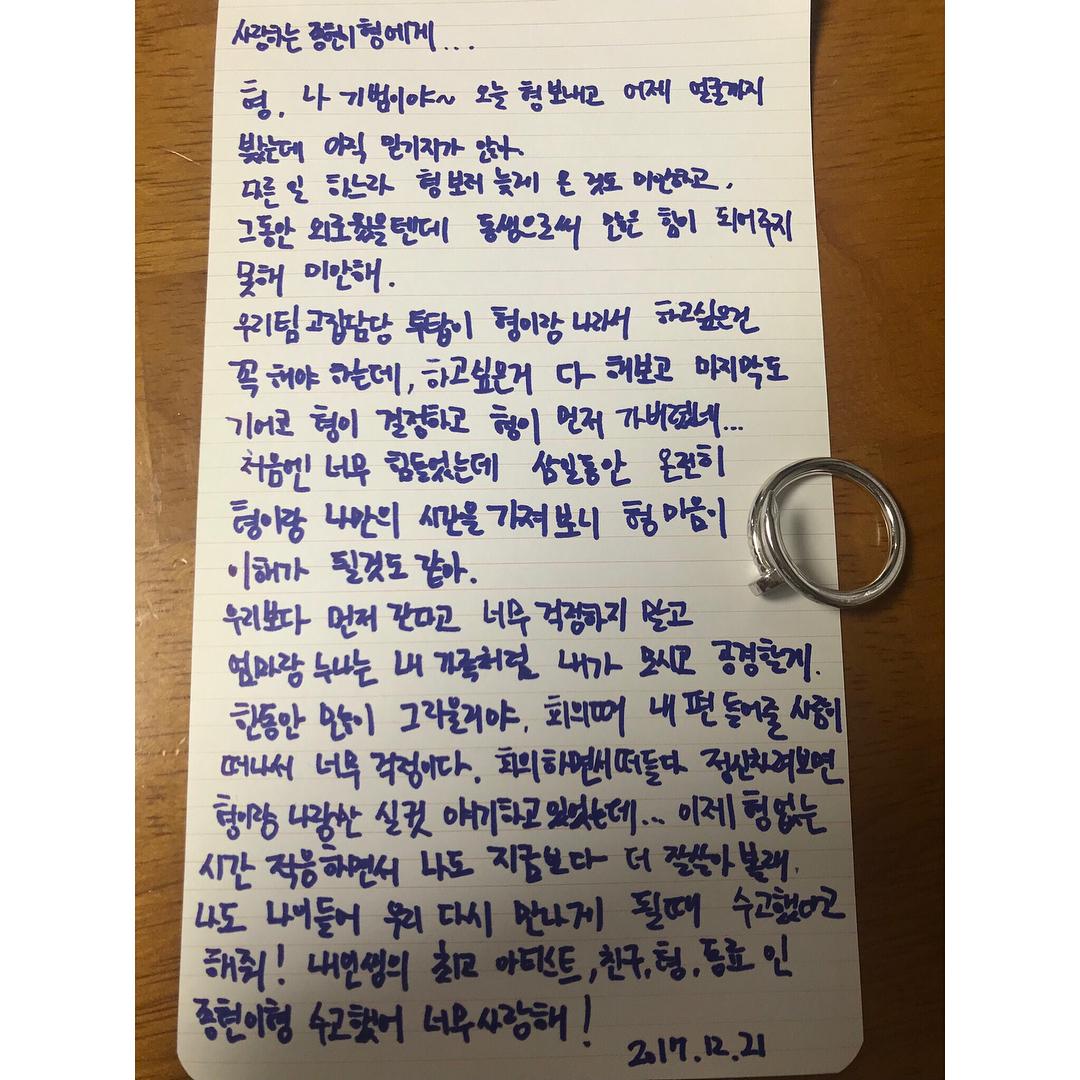 사랑하는 종현이형에게...
형, 나 기범이야~ 오늘 형보내고 어제 얼굴까지
봤는데 아직 믿기지가 않아.
다른 일 하느라 형보러 늦게 온 것도 미안하고,
그동안 외로웠을텐데 동생으로써 많은 힘이 되어주지
못해 미안해.
우리팀 고집담당 투탑이 형이랑 나라서 하고싶은건
꼭 해야 하는데, 하고싶은거 다 해보고 마지막도
기어코 형이 결정하고 형이 먼저 가버렸네...
처음엔 너무 힘들었는데 삼일동안 온전히
형이랑 나만의 시간을 가져보니 형 마음이
이해가 될것도 같아.
우리보다 먼저 간다고 너무 걱정하지 말고
엄마랑 누나는 내 가족처럼 내가 모시고 공경할게.
한동안 많이 그리울거야. 회의때 내 편 들어줄 사람이
떠나서 너무 걱정이다. 회의하면서 떠들다 정신차려보면
형이랑 나랑만 실컷 얘기하고있었는데... 이제 형 없는
시간 적응하면서 나도 지금보다 더 잘살아 볼래.
나도 나이들어 우리 다시 만나게 될때 수고했다고
해줘! 내인생의 최고 아티스트, 친구, 형, 동료 인
종현이형 수고했어 너무 사랑해!
2017.12.21